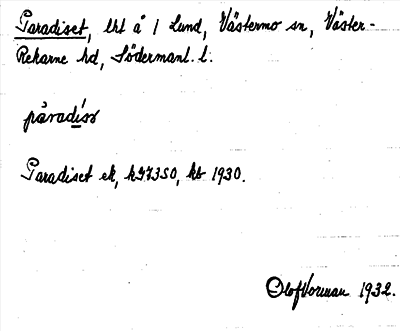 Paradiset, lht å 1 Lund, Västermo sn, Väster-
Rekarne hd, Södermanl. l.
påradís
Paradiset ek, hg7350, kb 1930.
Olof Vorman 1932.